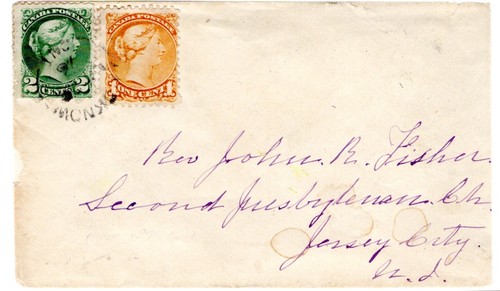 CANADA POSTAGE
2 CENTS 2
CANADA POSTAGE
1 ONE CENT 1
Rev John R. Fisher.
Second Presbyterian Ch.
Jersey City.
N. J.